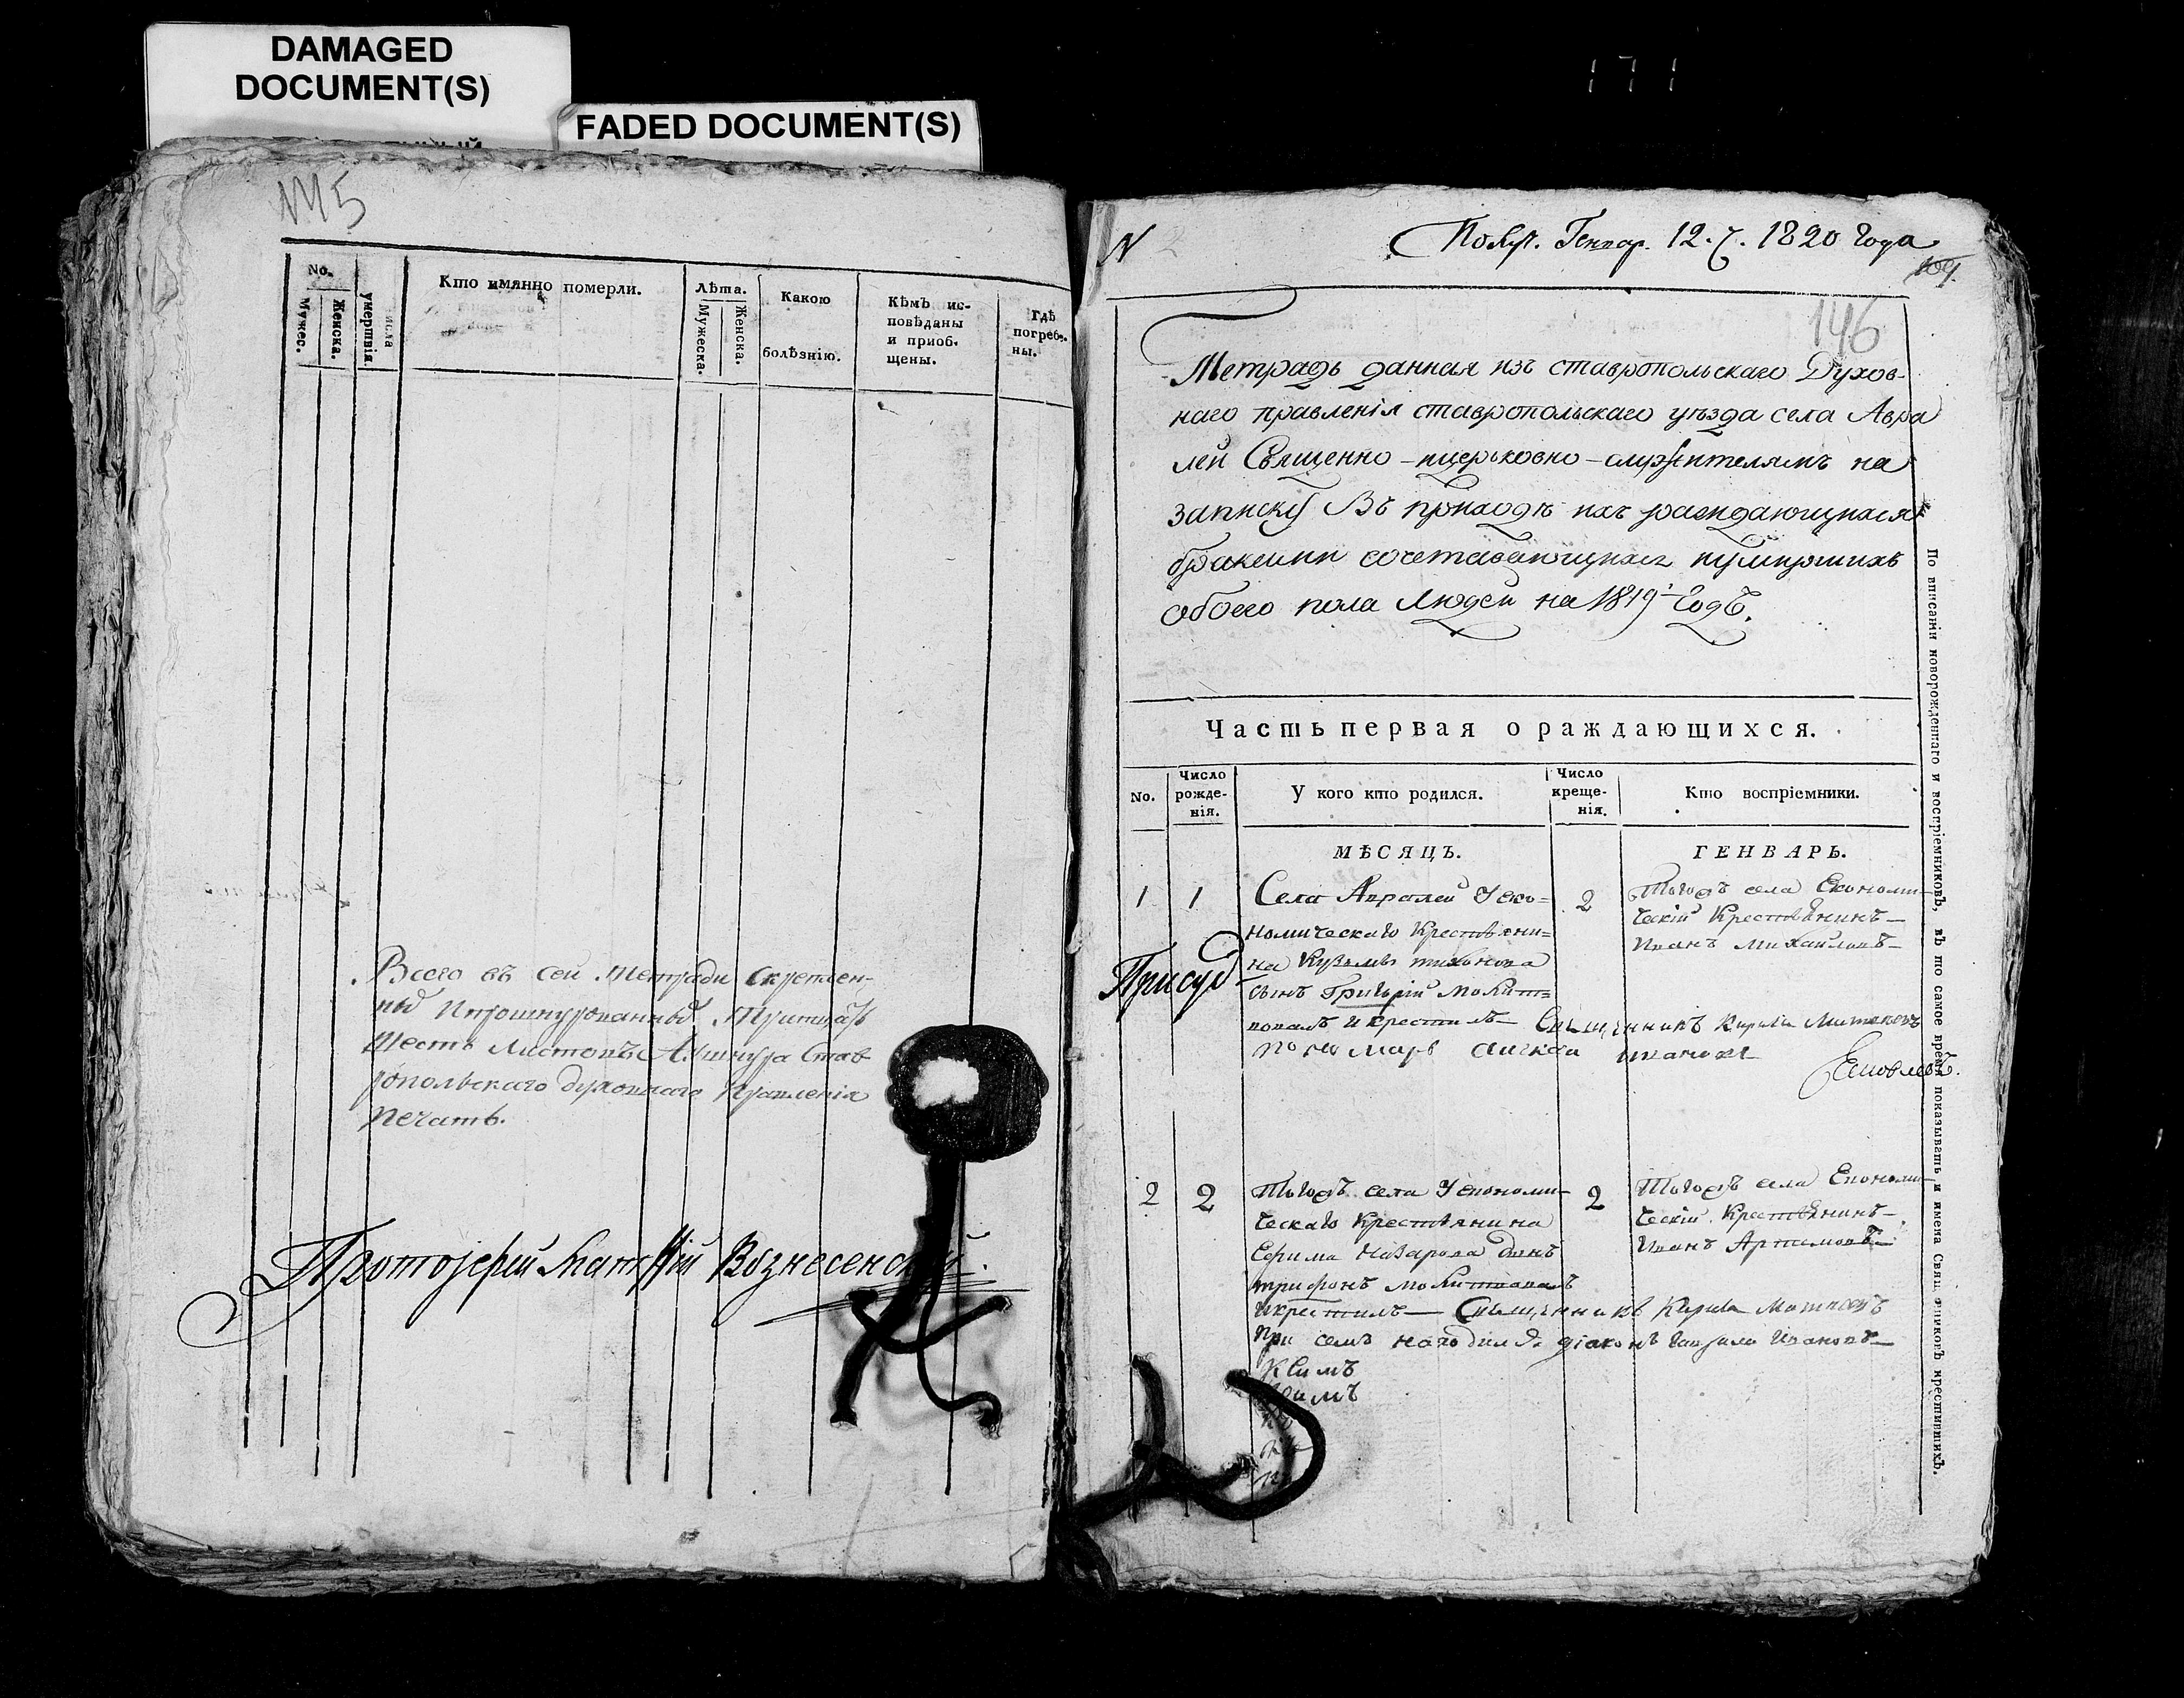 DAMAGED
DOCUMENT(S)
FADED DOCUMENT(S)
171
145
No.
Мужес.
Женска.
умертвія.
Кто имянно померли.
Лѣта.
Мужеска.
Женска.
Какою
болѣзнію.
Кѣмъ ис-
повѣданы
и приоб-
щены.
Гдѣ
погребе-
ны.
Всего въ сей тетради скрепген-
ныхъ
шесть листовъ
Ставропольскаго духовнаго правленія
печать.
Протоіерей Матѳій Вознесенскій.
N 2
Получ. Генвар. 12. ч. 1820 года
109.
146
Тетрадь данная изъ ставропольскаго Духов-
наго правленія ставропольскаго уѣзда села Авра
лей Священно-ицерьковно-служителямъ на
записку Въ приходѣ ихъ раждающихся
бракамии сочетавающихся иумирших
обоего пола людей на 1819 годъ.
Часть первая о раждающихся.
No.
Число
рожде-
нія.
У кого кто родился.
Число
креще-
нія.
Кто воспріемники.
МѢСЯЦЪ.
ГЕНВАРЬ.
1
1
Села Авралей Уеко-
номическаго Крестьяни-
на Кузьмы тихонова
сынъ Григорій молит-
вовалъ икрестилъ Священникъ Кирила Матвеевъ
пономарь Алексеи Ивановъ
2
Тогожъ села Економи-
ческій Крестьянинъ
Иванъ Михайловъ
2
2
Тогожъ села Уекономи-
ческаго Крестьянина
Ефима Назарова сынъ
трифонъ молитвовалъ
икрестилъ Священникъ Кирила Матвеевъ
при семъ находился діаконъ Гаврила Ивановъ
2
Тогожъ села Економи-
ческій Крестьянинъ
Иванъ Артемовъ
По вписаніи новорожденнаго и воспріемниковъ, въ то самое время показывать и имена Священниковъ крестившихъ.